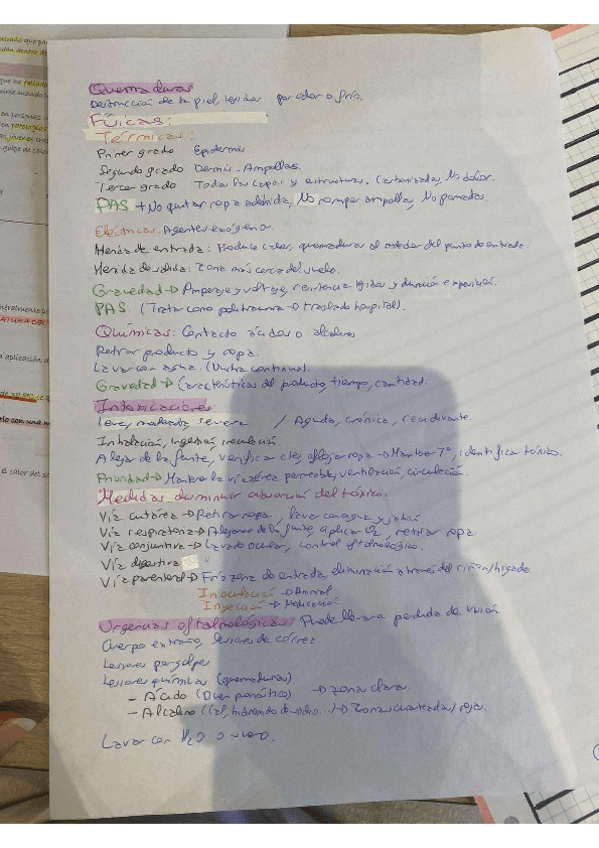 Quemaduras
Destrucción de la piel tejidos por calor o frío.
Físicas:
Térmicas:
Primer grado Epidermis
Segundo grado Dermis. Ampollas.
Tercer grado Todas las capas y estructuras. Carbonizada, No dolor.
PAS + No quitar ropa adherida, No romper ampollas, No pomadas.
Eléctricas: Agentes exógenos.
Herida de entrada: Produce calor, quemaduras al rededor del punto de entrada
Herida de salida: Zona más cerca del suelo.
Gravedad → Amperaje y voltaje, resistencia tejidos y duración exposición.
PAS (Tratar como politrauma → traslado hospital).
Químicas: Contacto ácidos o alcalinos
Retirar producto y ropa.
Lavar con agua. (Ducha continua).
Gravedad → Características del producto, tiempo, cantidad.
Intoxicaciones
Leve, moderada, severa / Aguda, crónica, recidivante.
Inhalación, ingestión, inoculación
Alejar de la fuente, verificar ctes, aflojar ropa → Mantener Tª, identificar tóxico.
Prioridad → Mantener la vía aérea permeable, ventilación, circulación.
Medidas disminuir absorción del tóxico.
Vía cutánea → Retirar ropa, lavar con agua y jabón
Vía respiratoria → Alejarse de la fuente, aplicar O2, retirar ropa
Vía conjuntiva → Lavado ocular, control oftalmológico.
Vía digestiva
Vía parenteral → Frío zona de entrada, eliminación a través del riñón/hígado
Inoculación → Animal
Inyección → Medicación
Urgencias oftalmológicas / Puede llevar a perdida de visión
Cuerpo extraño, lesiones de córnea.
Lesiones por golpes
Lesiones químicas (quemaduras).
- Ácido (Buen pronóstico) → zona clara
- Alcalino (Cal, hidróxido de sodio...) → Zonas / rojas
Lavar con H2O o suero.